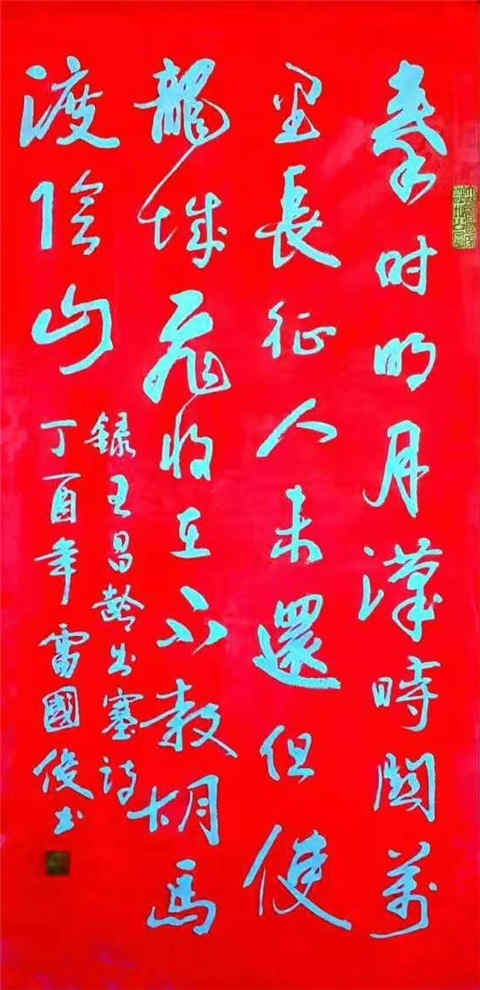 秦时明月漢時関萬
里長征人未還但使
龍城飛将在不教胡馬
渡陰山
録王昌齡出塞诗
丁酉年雷國俊书